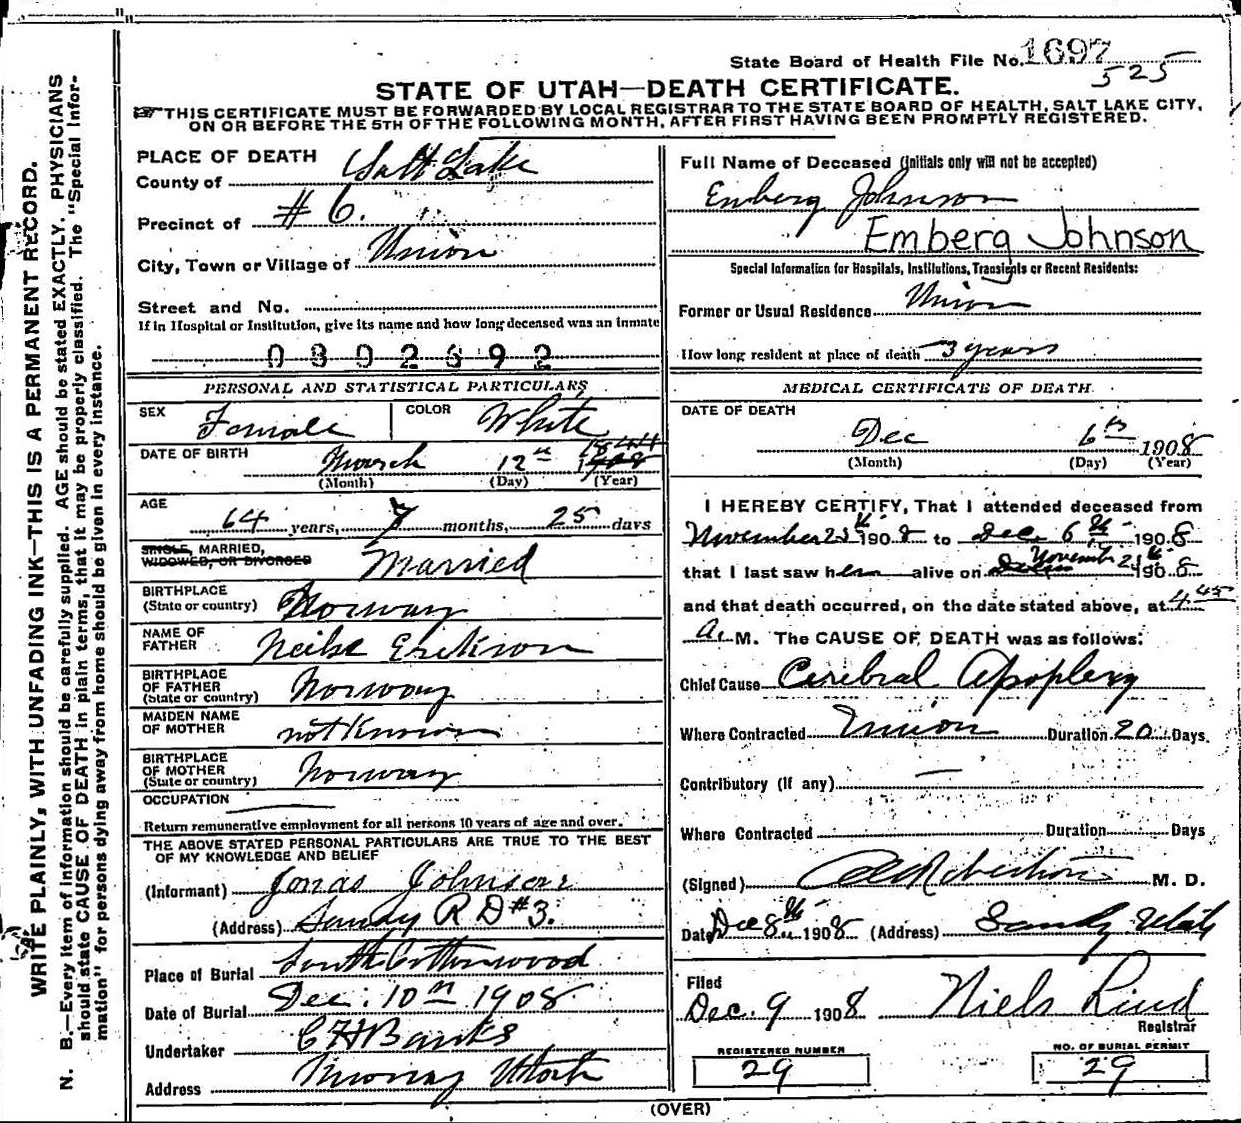 State Board of Health File No. 1697
525
STATE OF UTAH—DEATH CERTIFICATE.
THIS CERTIFICATE MUST BE FORWARDED BY LOCAL REGISTRAR TO THE STATE BOARD OF HEALTH, SALT LAKE CITY,
ON OR BEFORE THE 5TH OF THE FOLLOWING MONTH, AFTER FIRST HAVING BEEN PROMPTLY REGISTERED.
WRITE PLAINLY, WITH UNFADING INK—THIS IS A PERMANENT RECORD.
N. B.—Every item of information should be carefully supplied. AGE should be stated EXACTLY. PHYSICIANS
should state CAUSE OF DEATH in plain terms, that it may be properly classified. The "Special Infor-
mation" for persons dying away from home should be given in every instance.
PLACE OF DEATH
County of Salt Lake
Precinct of # 6.
City, Town or Village of Union
Street and No.
If in Hospital or Institution, give its name and how long deceased was an inmate
0302692
PERSONAL AND STATISTICAL PARTICULARS
SEX Female COLOR White
DATE OF BIRTH March 12th 1844
(Month) (Day) (Year)
AGE
64 years, 7 months, 25 days
SINGLE, MARRIED,
WIDOWED, OR DIVORCED Married
BIRTHPLACE
(State or country) Norway
NAME OF
FATHER Neilse Erikson
BIRTHPLACE
OF FATHER
(State or country) Norway
MAIDEN NAME
OF MOTHER not Known
BIRTHPLACE
OF MOTHER
(State or country) Norway
OCCUPATION
Return remunerative employment for all persons 10 years of age and over.
THE ABOVE STATED PERSONAL PARTICULARS ARE TRUE TO THE BEST
OF MY KNOWLEDGE AND BELIEF
(Informant) Jonas Johnson
(Address) Sandy R D #3.
Place of Burial South Cottonwood
Date of Burial Dec. 10th 1908
Undertaker C H Banks
Address Murray Utah
Full Name of Deceased (Initials only will not be accepted)
Emberg Johnson
Emberg Johnson
Special Information for Hospitals, Institutions, Transients or Recent Residents:
Former or Usual Residence Union
How long resident at place of death 3 years
MEDICAL CERTIFICATE OF DEATH
DATE OF DEATH
Dec 6th 1908
(Month) (Day) (Year)
I HEREBY CERTIFY, That I attended deceased from
November 25th 1908 to Dec. 6th 1908
that I last saw her alive on November 25th 1908
and that death occurred, on the date stated above, at 4.45
A. M. The CAUSE OF DEATH was as follows:
Chief Cause Cerebral Apoplexy
Where Contracted Union Duration 20 Days.
Contributory (if any) —
Where Contracted Duration Days
(Signed) Robertson M. D.
Date Dec 8th 1908 (Address) Sandy Utah
Filed
Dec. 9 1908 Niels Lind
Registrar
REGISTERED NUMBER
29
NO. OF BURIAL PERMIT
29
(OVER)